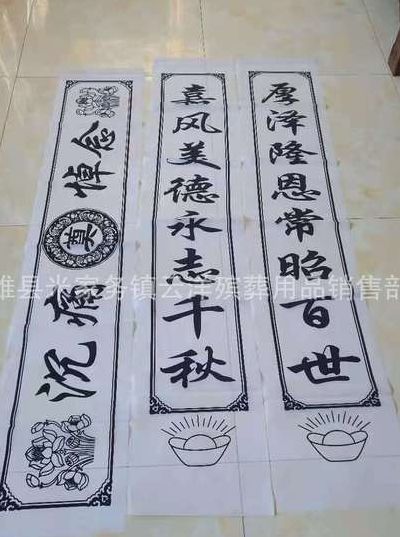 厚泽隆恩常昭百世
嘉风美德永志千秋
沉痛奠悼念
雄县米家务镇云洋殡葬用品销售部